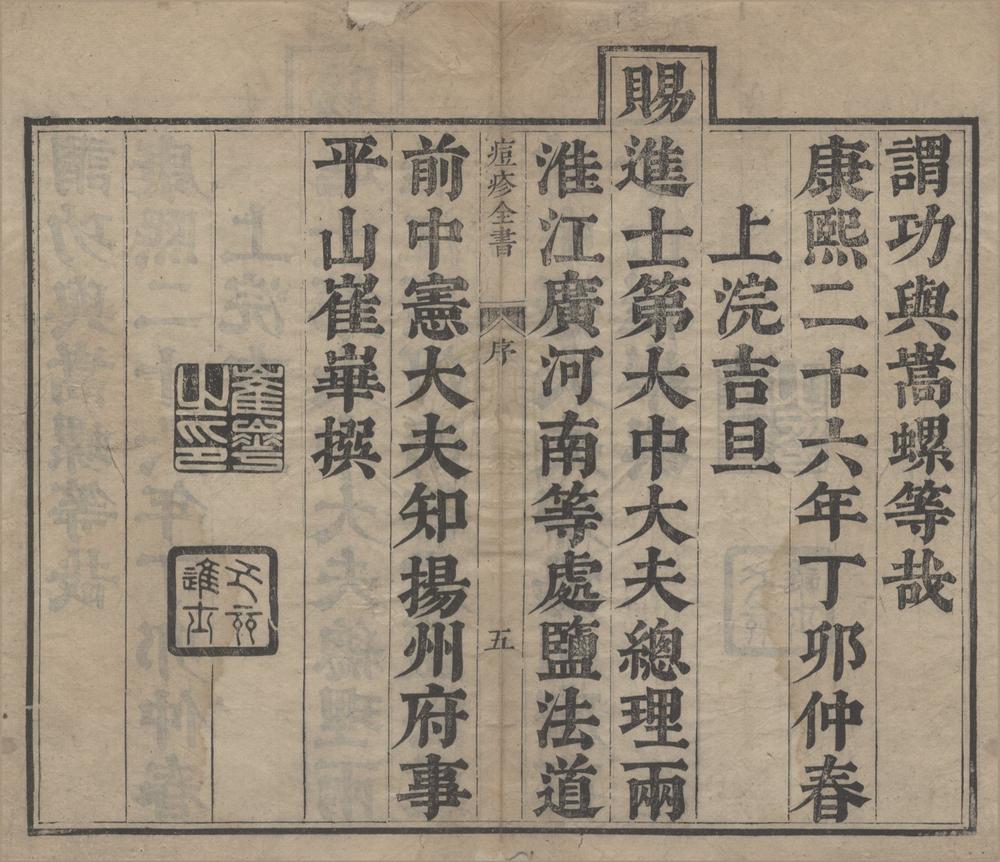 謂功與嵩螺等哉
康熙二十六年丁卯仲春
上浣吉旦
賜進士第大中大夫總理兩
淮江廣河南等處鹽法道
痘疹全書
序
五
前中憲大夫知揚州府事
平山崔崋撰
崔崋之印
進士